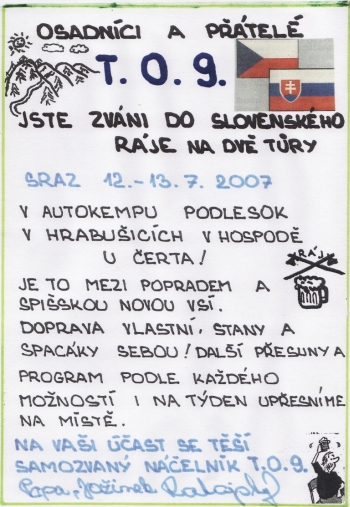 OSADNÍCI A PŘÁTELÉ
T. O. 9.
JSTE ZVÁNI DO SLOVENSKÉHO
RÁJE NA DVĚ TŮRY
SRAZ 12.-13. 7. 2007
V AUTOKEMPU PODLESOK
V HRABUŠICÍCH V HOSPODĚ
U ČERTA!
RÁJ
JE TO MEZI POPRADEM A
SPIŠSKOU NOVOU VSÍ.
DOPRAVA VLASTNÍ, STANY A
SPACÁKY SEBOU! DALŠÍ PŘESUNY A
PROGRAM PODLE KAŽDÉHO
MOŽNOSTÍ I NA TÝDEN UPŘESNÍME
NA MÍSTĚ.
NA VAŠI ÚČAST SE TĚŠÍ
SAMOZVANÝ NÁČELNÍK T.O.9.
Papa